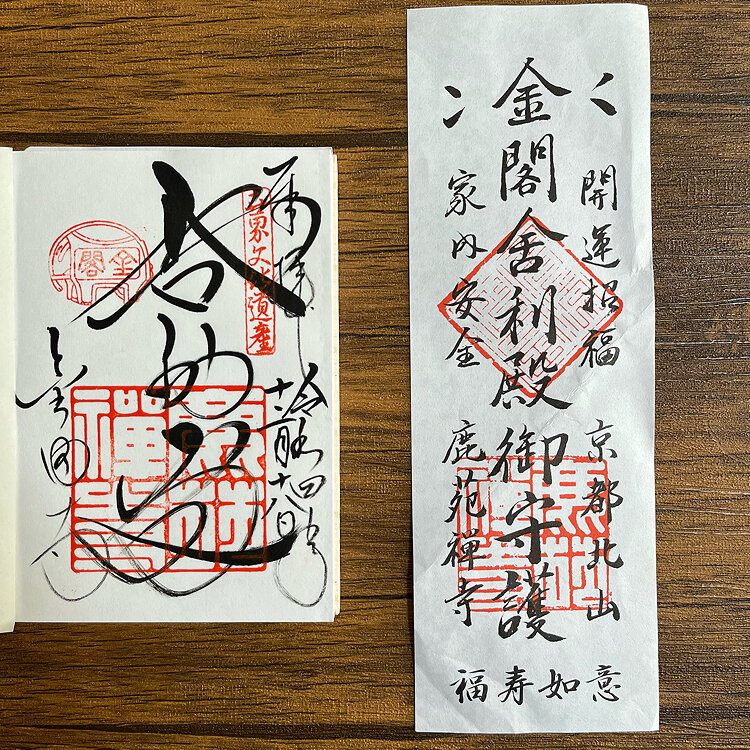 奉拝
世界文化遺産
令和四年
舎利殿
金閣
金閣寺
開運招福
京都北山
金閣舎利殿御守護
家内安全
鹿苑禪寺
福寿如意